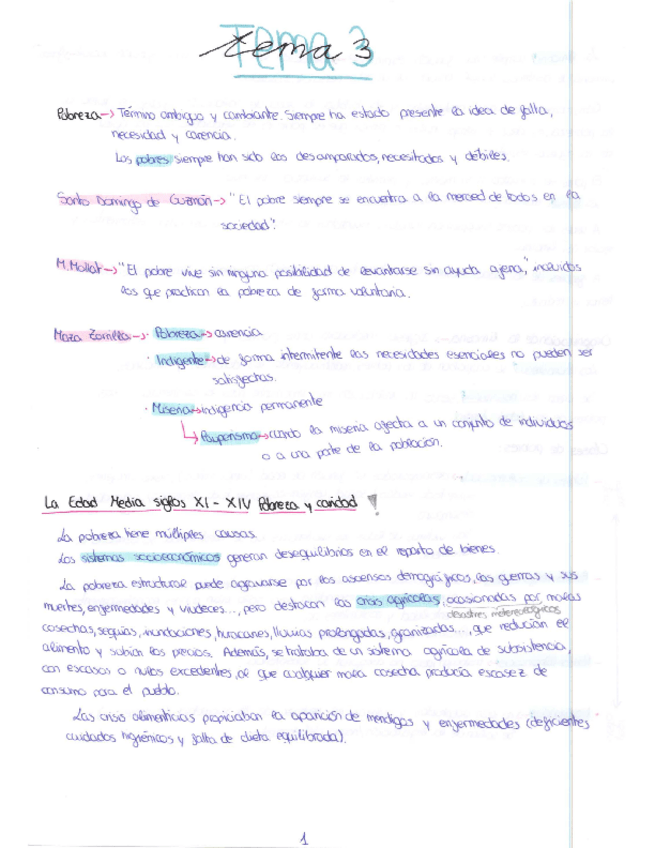 Tema 3
Pobreza → Término ambiguo y cambiante. Siempre ha estado presente la idea de falta,
necesidad y carencia.
Los pobres siempre han sido los desamparados, necesitados y débiles.
Santo Domingo de Guzmán → "El pobre siempre se encuentra a la merced de todos en la
sociedad".
M. Mollat → "El pobre vive sin ninguna posibilidad de levantarse sin ayuda ajena", incluidos
los que practican la pobreza de forma voluntaria.
Maza Zorrilla → · Pobreza → carencia
· Indigente → de forma intermitente las necesidades esenciales no pueden ser
satisfechas.
· Miseria → indigencia permanente
↳ Pauperismo → cuando la miseria afecta a un conjunto de individuos
o a una parte de la población.
La Edad Media siglos XI - XIV Pobreza y caridad
La pobreza tiene múltiples causas.
Los sistemas socioeconómicos generan desequilibrios en el reparto de bienes.
La pobreza estructural puede agravarse por los ascensos demográficos, las guerras y sus
muertes, enfermedades y viudeces..., pero destacan las crisis agrícolas, ocasionadas por malas
desastres metereológicos
cosechas, sequías, inundaciones, huracanes, lluvias prolongadas, granizadas..., que reducían el
alimento y subían los precios. Además, se trataba de un sistema agrícola de subsistencia,
con escasos o nulos excedentes, al que cualquier mala cosecha producía escasez de
consumo para el pueblo.
Las crisis alimenticias propiciaban la aparición de mendigos y enfermedades (deficientes
cuidados higiénicos y falta de dieta equilibrada).
1